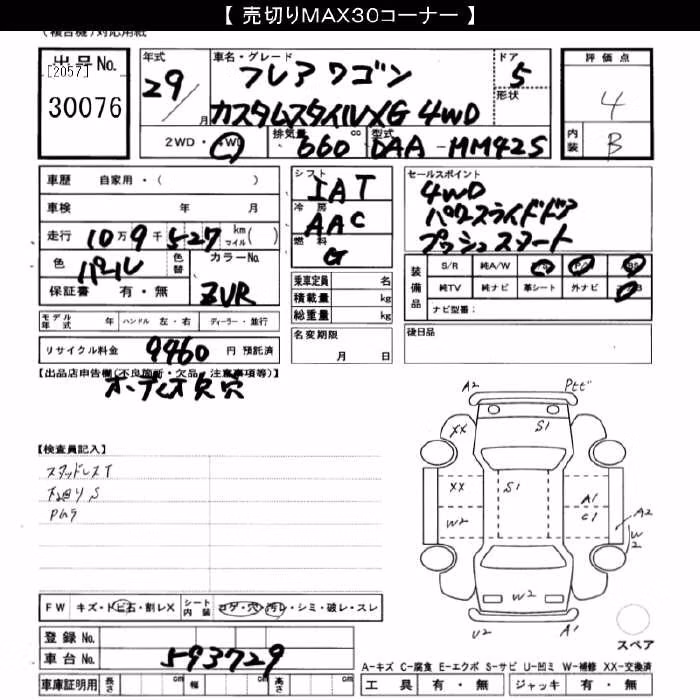 【 売切りMAX30コーナー 】
(複合機)対応用紙
出品No. 年式 車名・グレード ドア 評価点
[2057] 29 フレアワゴン 5
30076 月 カスタムスタイルXG 4WD 形状 4
2WD・4WD 排気量 660 cc 型式 DAA-MM42S 内装 B
車歴 自家用・( ) シフト IAT セールスポイント
車検 年 月 冷房 AAC 4WD
走行 10万9千527 km マイル( ) 燃料 G パワースライドドア
色 パール 色替 カラーNo. プッシュスタート
保証書 有・無 ZVR
乗車定員 名
積載量 kg
総重量 kg
装備品 S/R 純A/W
純TV 純ナビ 革シート 外ナビ
ナビ型番:
モデル年式 年 ハンドル 左・右 ディーラー・並行
名変期限 月 日
後日品
リサイクル料金 9460 円 預託済
【出品店申告欄(不良箇所・欠品・注意事項等)】
オーディオ欠穴
【検査員記入】
スタッドレスT
下廻りS
A2 Pヒビ
XX S1
XX S1 A1
W2 C1 A2
W2
W2
U2 A1
スペア
FW キズ・トビ石・割レX シート内装 コゲ・穴・汚レ・シミ・破レ・スレ
登録No.
車台No. 593729
A-キズ C-腐食 E-エクボ S-サビ U-凹ミ W-補修 XX-交換済
車庫証明用 長さ cm 幅 cm 高さ cm 工具 有・無 ジャッキ 有・無